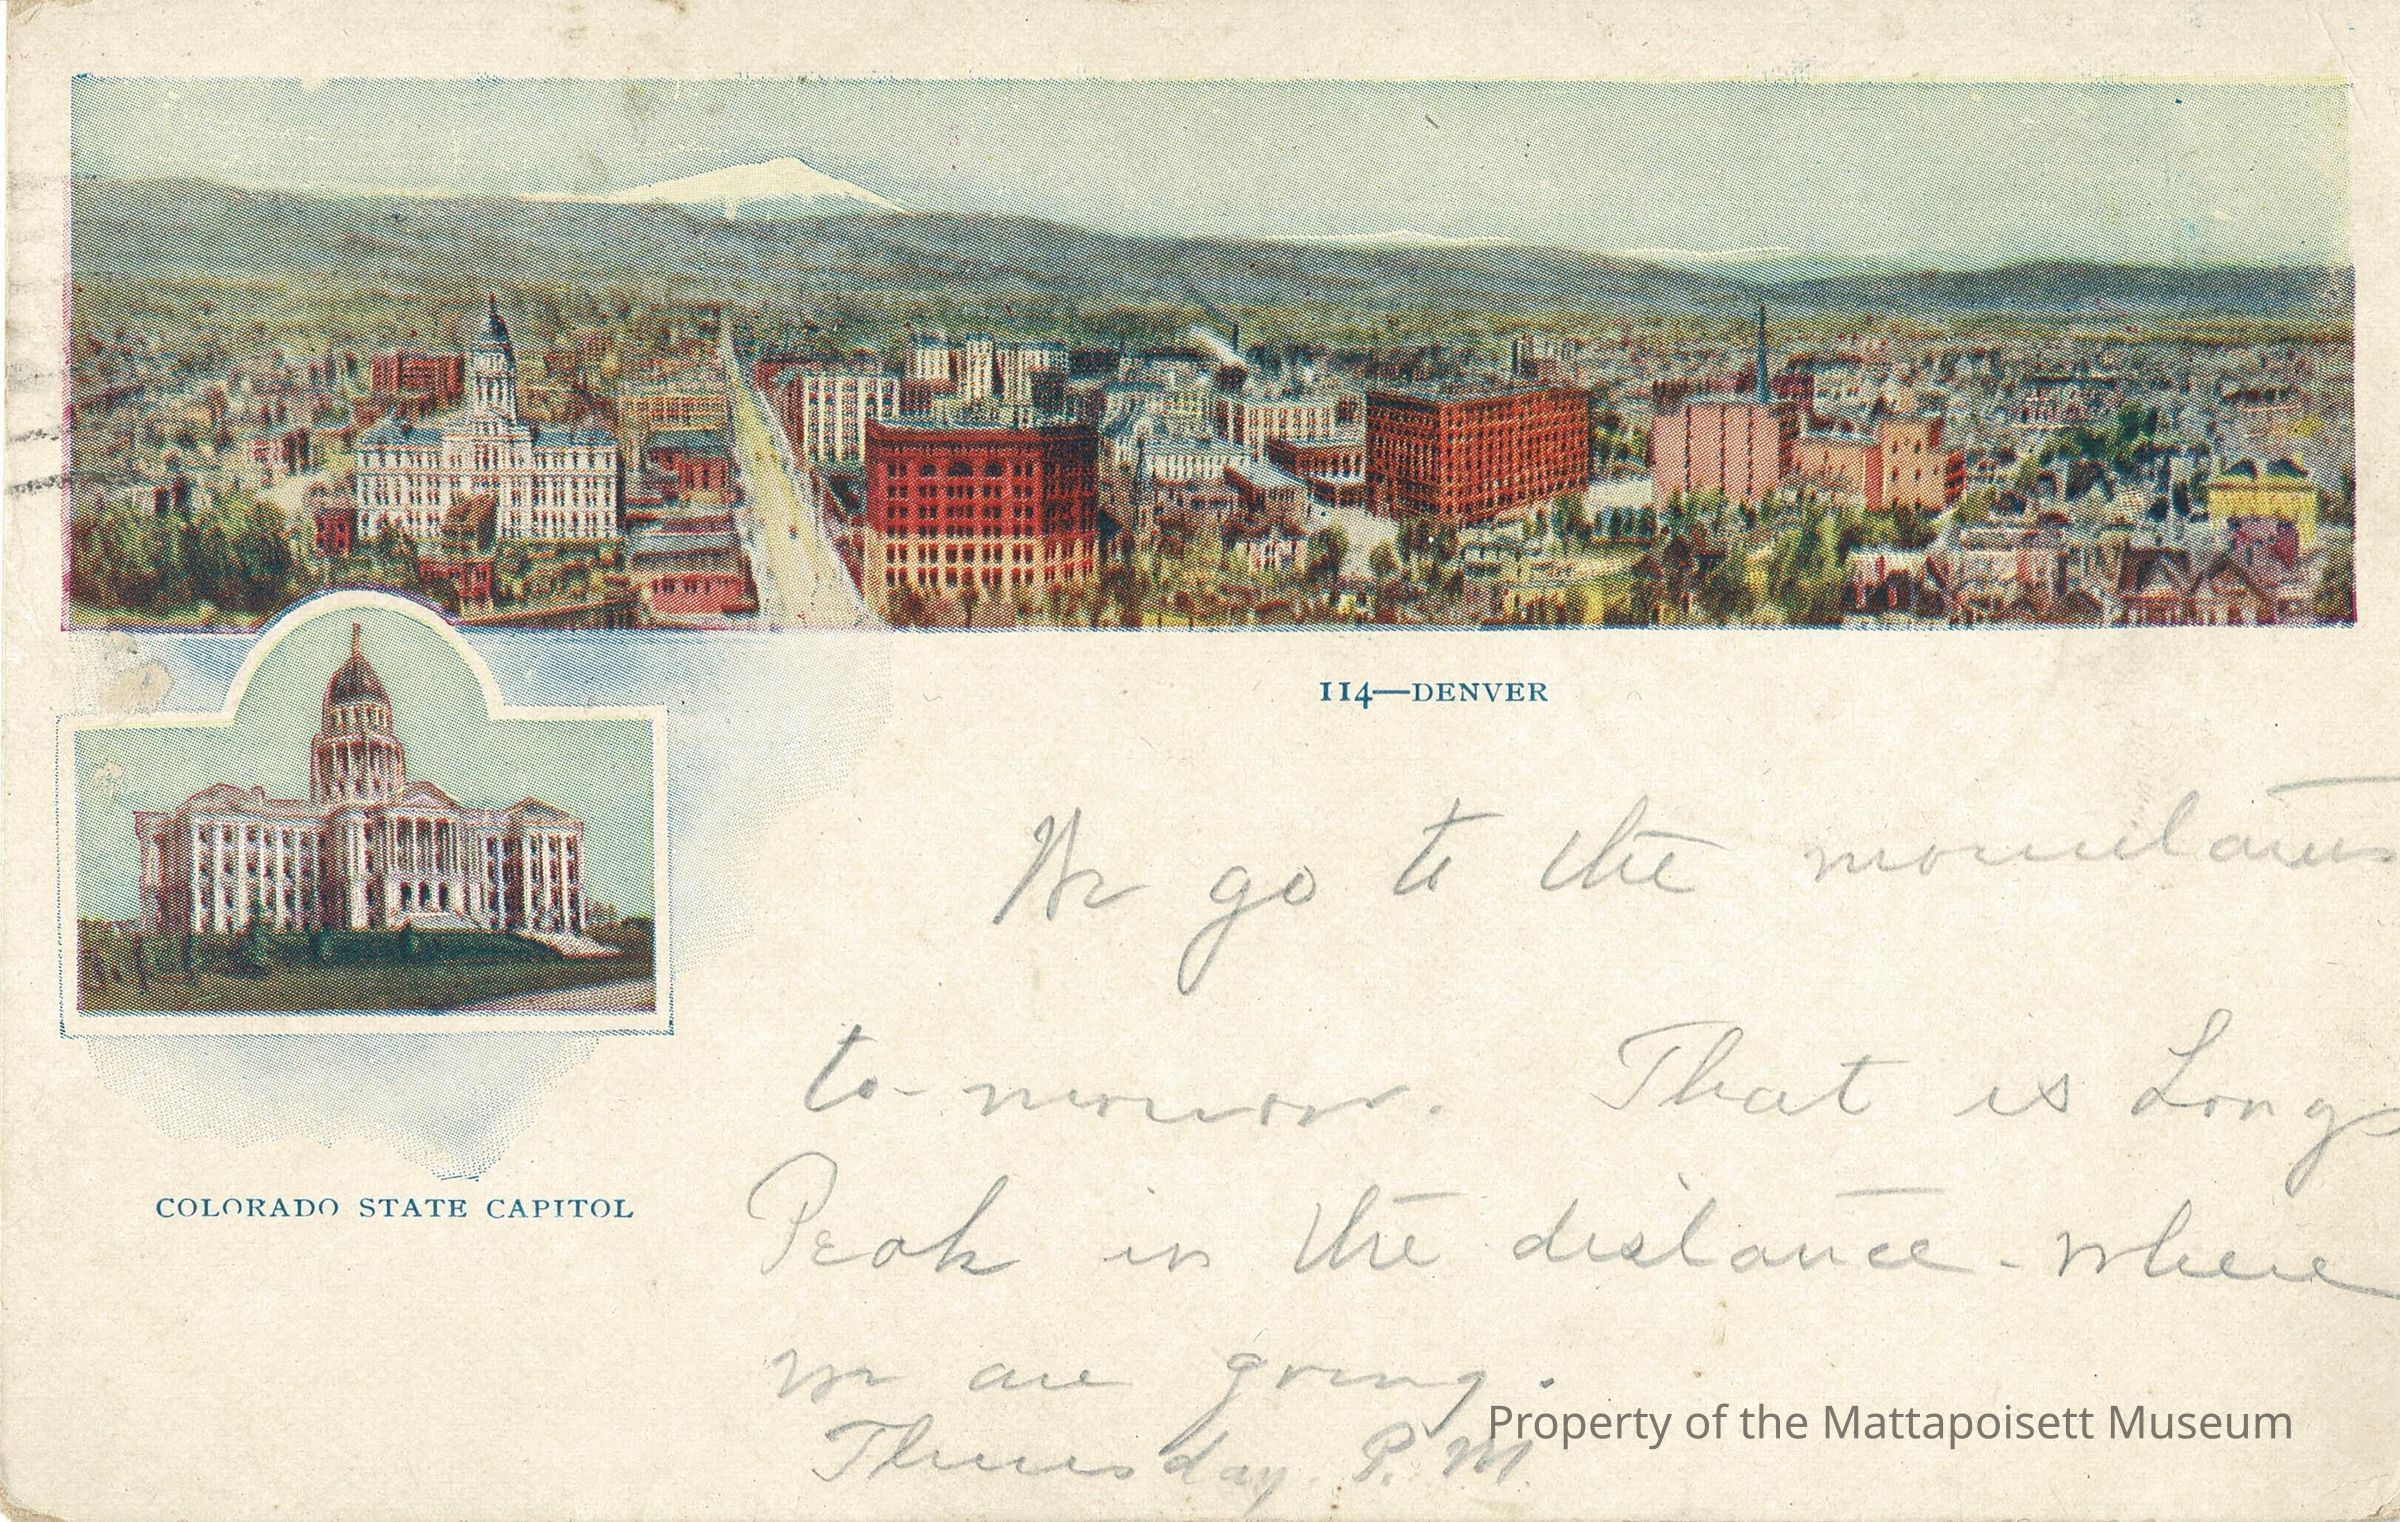 114—DENVER
COLORADO STATE CAPITOL
We go to the mountains
to-morrow. That is Longs
Peak in the distance - where
we are going.
Thursday. P. M.
Property of the Mattapoisett Museum